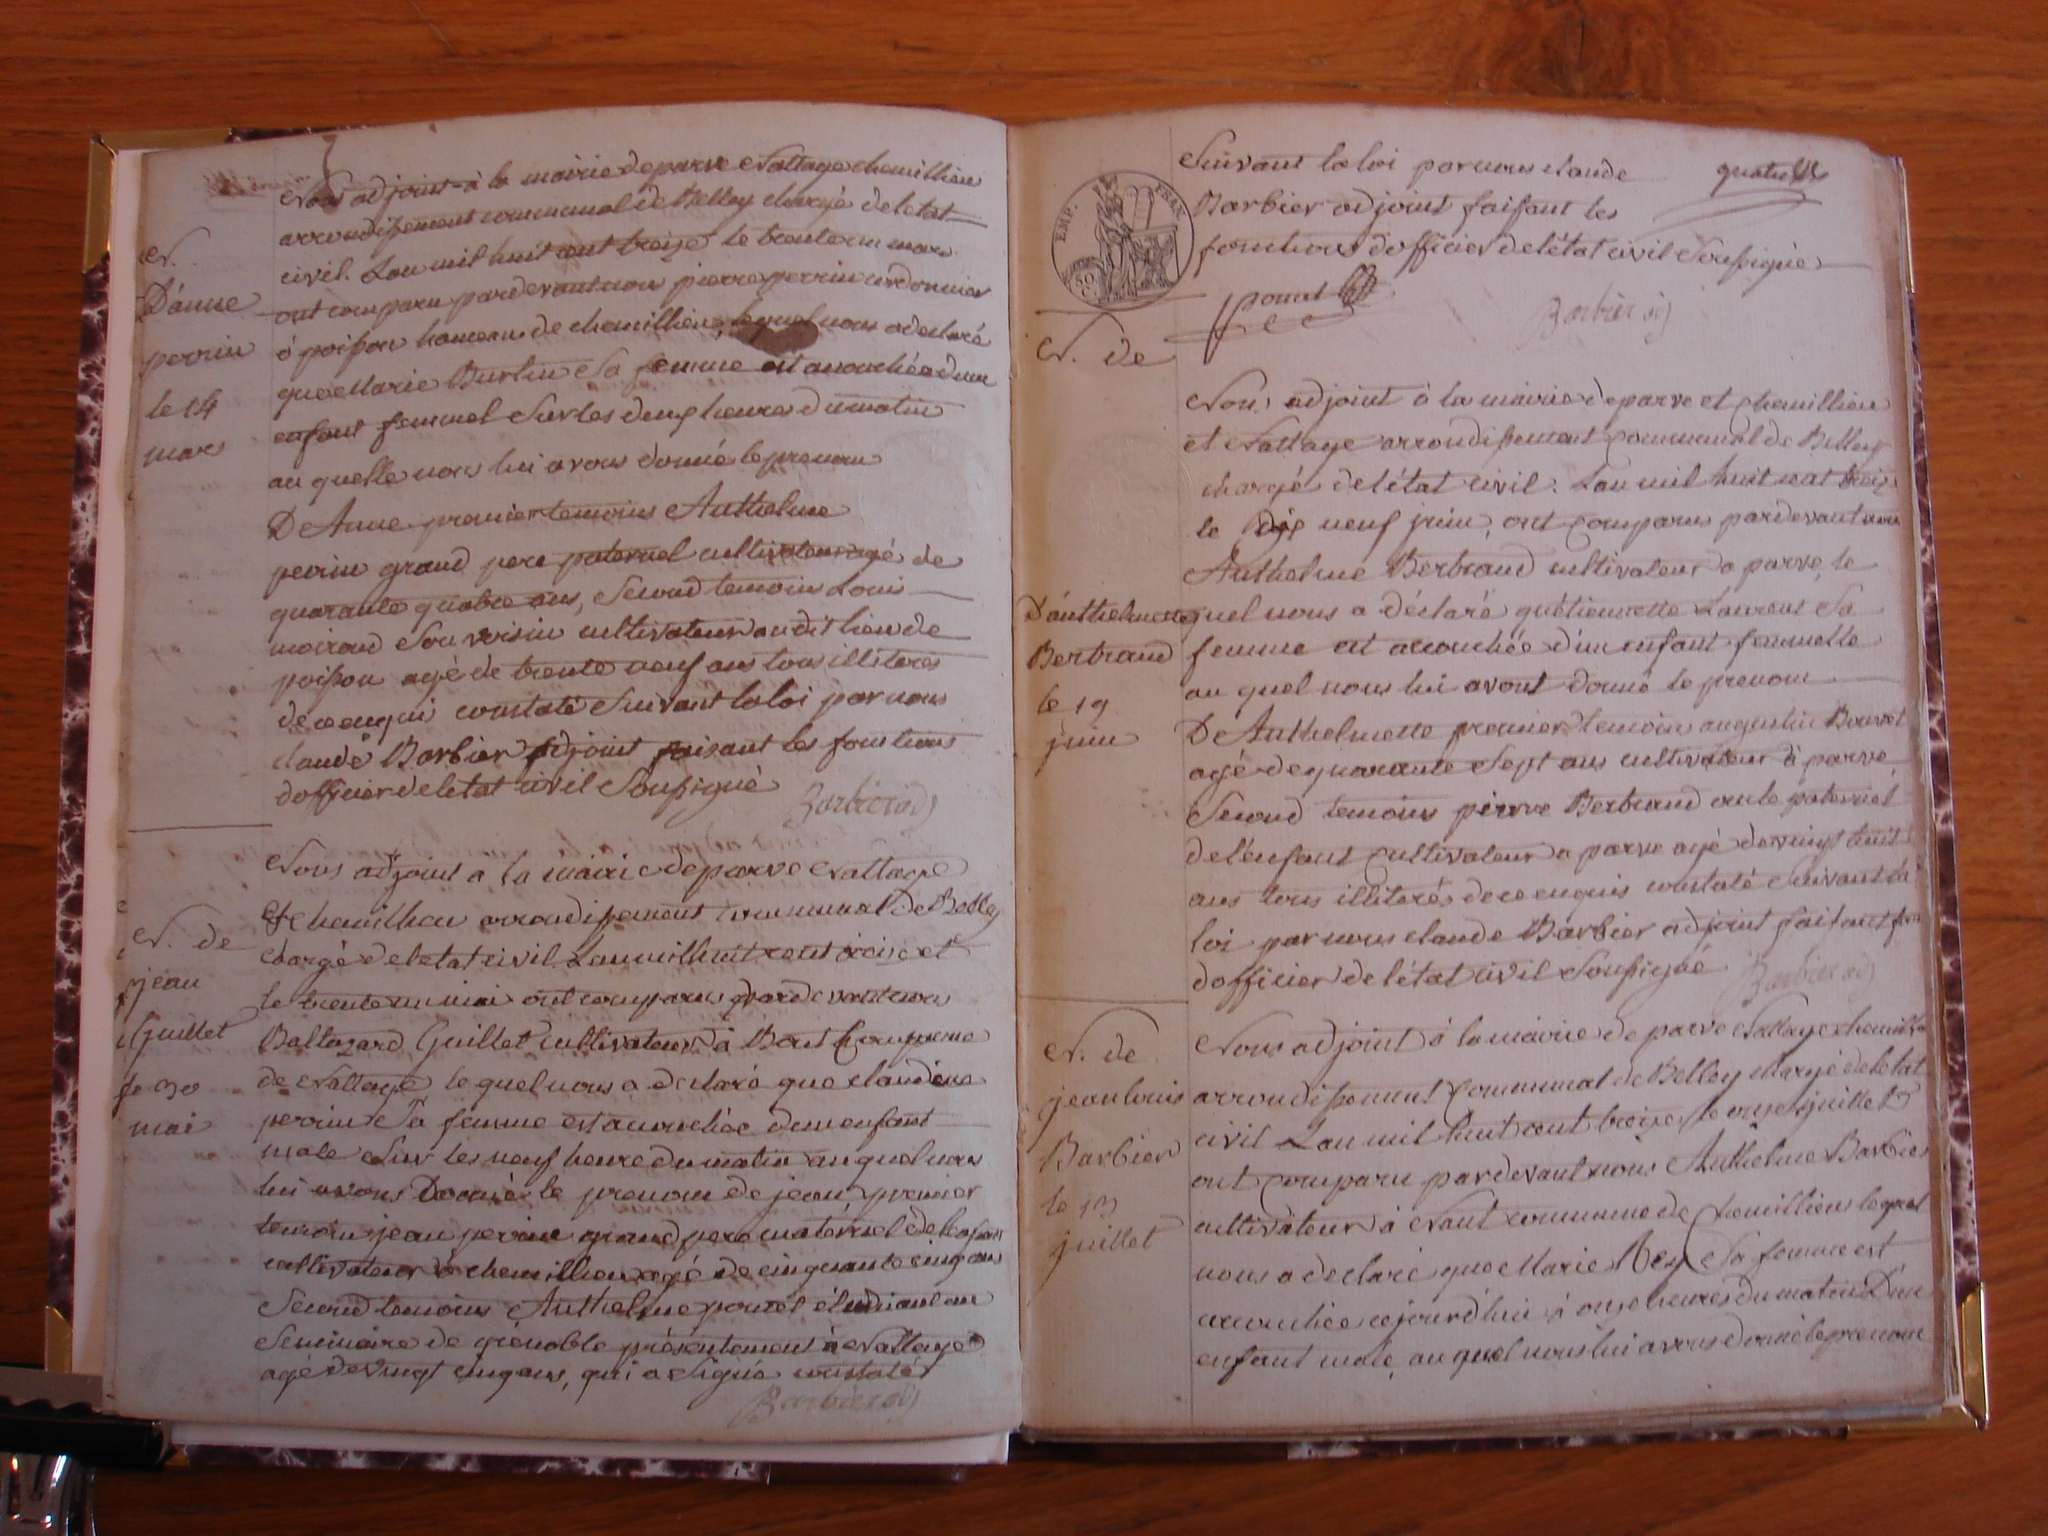 Nous adjoint à la mairie de parve Nattage chemillieu
arrondissement communal de Belley chargé de letat
civil. Lan mil huit cent treize le trente un mars
ont comparu pardevant nous pierre perrin cordonnier
à poisson hameau de chemillieu, lequel nous a declaré
que Marie Burtin Sa femme est accouchée dun
enfant femmel Sur les deux heures du matin
au quelle nous lui avons donné le prenom
De Anne premier temoins Anthelme
perrin grand pere paternel cultivateur agé de
quarante quatre ans, Second temoins Louis
moiroud Son voisin cultivateur au dit lieu de
poisson agé de trente neuf ans tous illiterés
de ce enquis constaté Suivant la loi par nous
claude Barbier adjoint faisant les fonctions
dofficier de letat civil Soussigné
Barbier adj
N.
D'anne
perrin
le 14
mars
Nous adjoint a la mairie de parve Nattage
et chemillieu arrondissement communal de Belley
chargé de letat civil. Lan mil huit cent treize et
le trente un mai ont comparus pardevant nous
Baltazard Guillet cultivateur à Bont Commune
de Nattage le quel nous a declaré que claudine
perrin Sa femme est accouchée dun enfant
male Sur les neuf heure du matin au quel nous
lui avons Donné le prenom de jean premier
temoin jean perrin grand pere maternel de l'enfant
cultivateur à chemillieu agé de cinquante cinq ans
Second temoins Anthelme ponet étudiant au
Seminaire de grenoble présentement à Nattage
agé de vingt cinq ans, qui a Signé constaté
Barbier adj
N. de
jean
Guillet
le 30
mai
Suivant la loi par nous claude
Barbier adjoint faisant les
fonctions dofficier de létat civil Soussigné
Barbier adj
EMP. FRAN.
N. de
D'anthelmette
Bertrand
le 19
juin
Nous adjoint à la mairie de parve et chemillieu
et Nattage arrondissement communal de Belley
chargé de létat civil. Lan mil huit cent treize
le dix neuf juin, ont comparus pardevant nous
Anthelme Bertrand cultivateur a parve, le
quel nous a déclaré qu'étiennette Laurent Sa
femme est accouchée d'un enfant femmelle
au quel nous lui avons donné le prenom
De Anthelmette premier temoin augustin Bouvet
agé de quarante Sept ans cultivateur à parve,
Second temoins pierre Bertrand oncle paternel
de lenfant cultivateur a parve agé de vingt huit
ans tous illiterés de ce enquis constaté Suivant la
loi par nous claude Barbier adjoint faisant fon
dofficier de létat civil Soussigné
Barbier adj
N. de
jean louis
Barbier
le 11
juillet
Nous adjoint à la mairie de parve Nattage chemillieu
arrondissement Communal de Belley chargé de letat
civil Lan mil huit cent treize, le onze juillet
ont comparu pardevant nous Anthelme Barbier
cultivateur à Nant commune de Chemillieu lequel
nous a declaré que Marie Rey Sa femme est
accouchée cejourd'hui à onze heures du matin D'un
enfant male, au quel nous lui avons donné le prenom